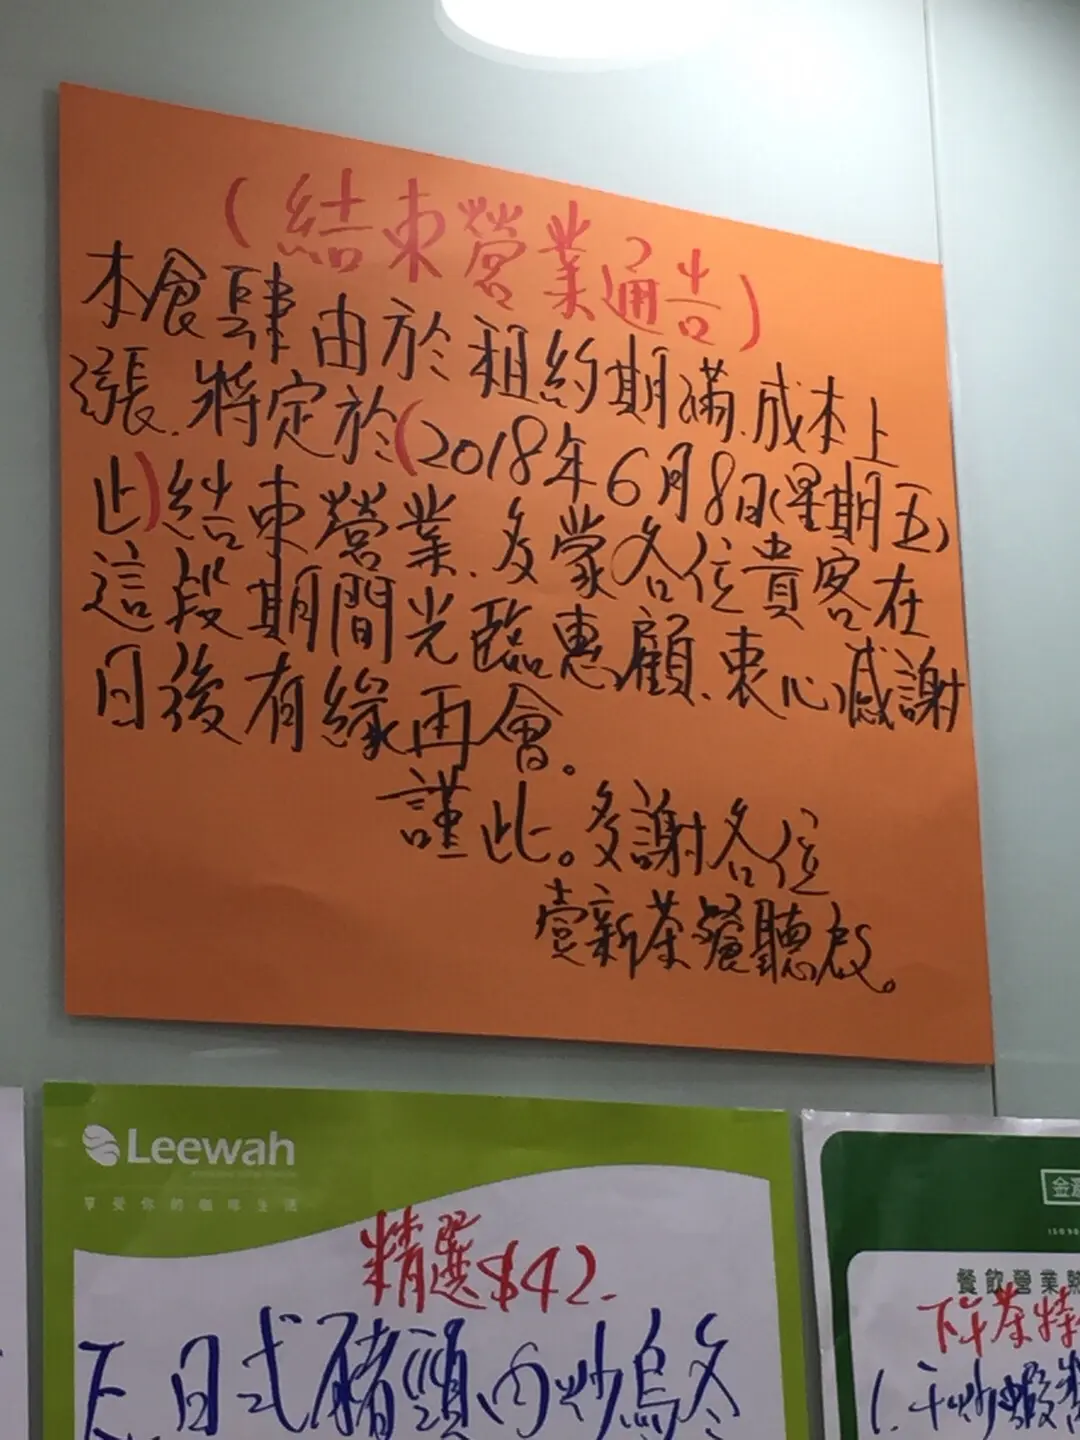 (結束營業通告)
本食肆由於租約期滿.成本上
漲.將定於(2018年6月8日(星期五)
止)結束營業.多蒙各位貴客在
這段期間光臨惠顧、衷心感謝
日後有緣再會。
謹此。多謝各位
壹新茶餐聽啟。
Leewah
享受你的咖啡生活
精選$42.
日式豬頸肉炒烏冬
餐飲營業
下午茶特
1.干炒蝦